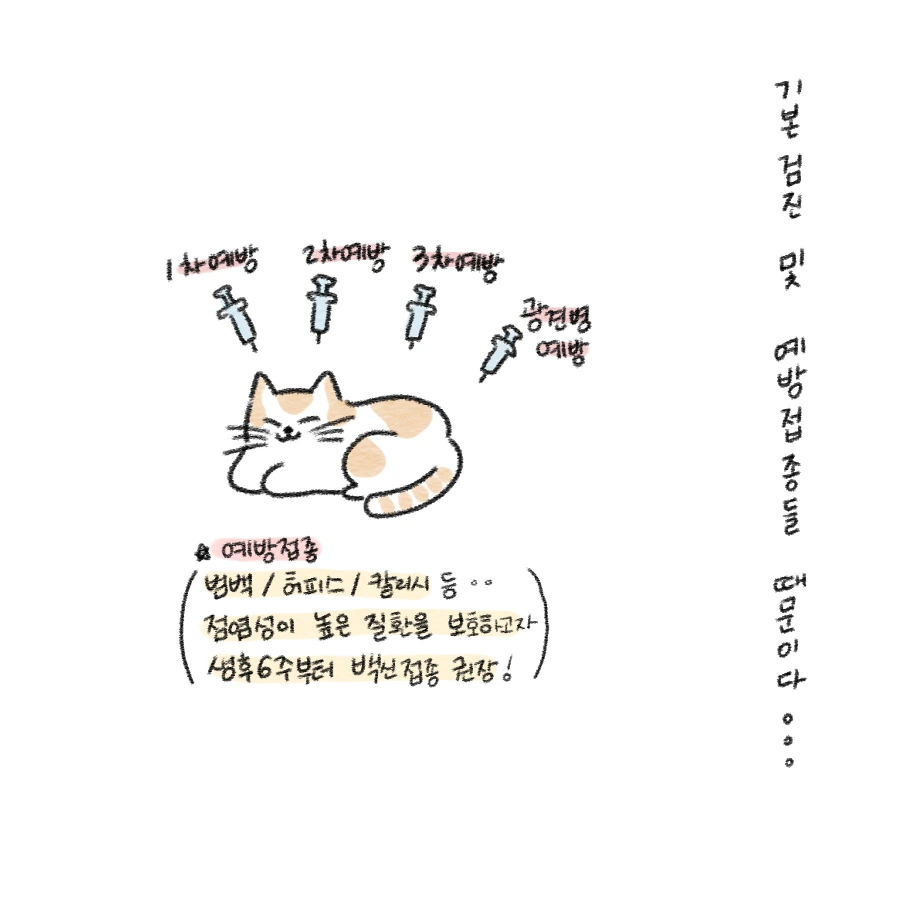 기본 검진 및 예방접종들 때문이다...
1차예방
2차예방
3차예방
광견병
예방
★ 예방접종
범백 / 허피스 / 칼리시 등..
점염성이 높은 질환을 보호하고자
생후6주부터 백신접종 권장!